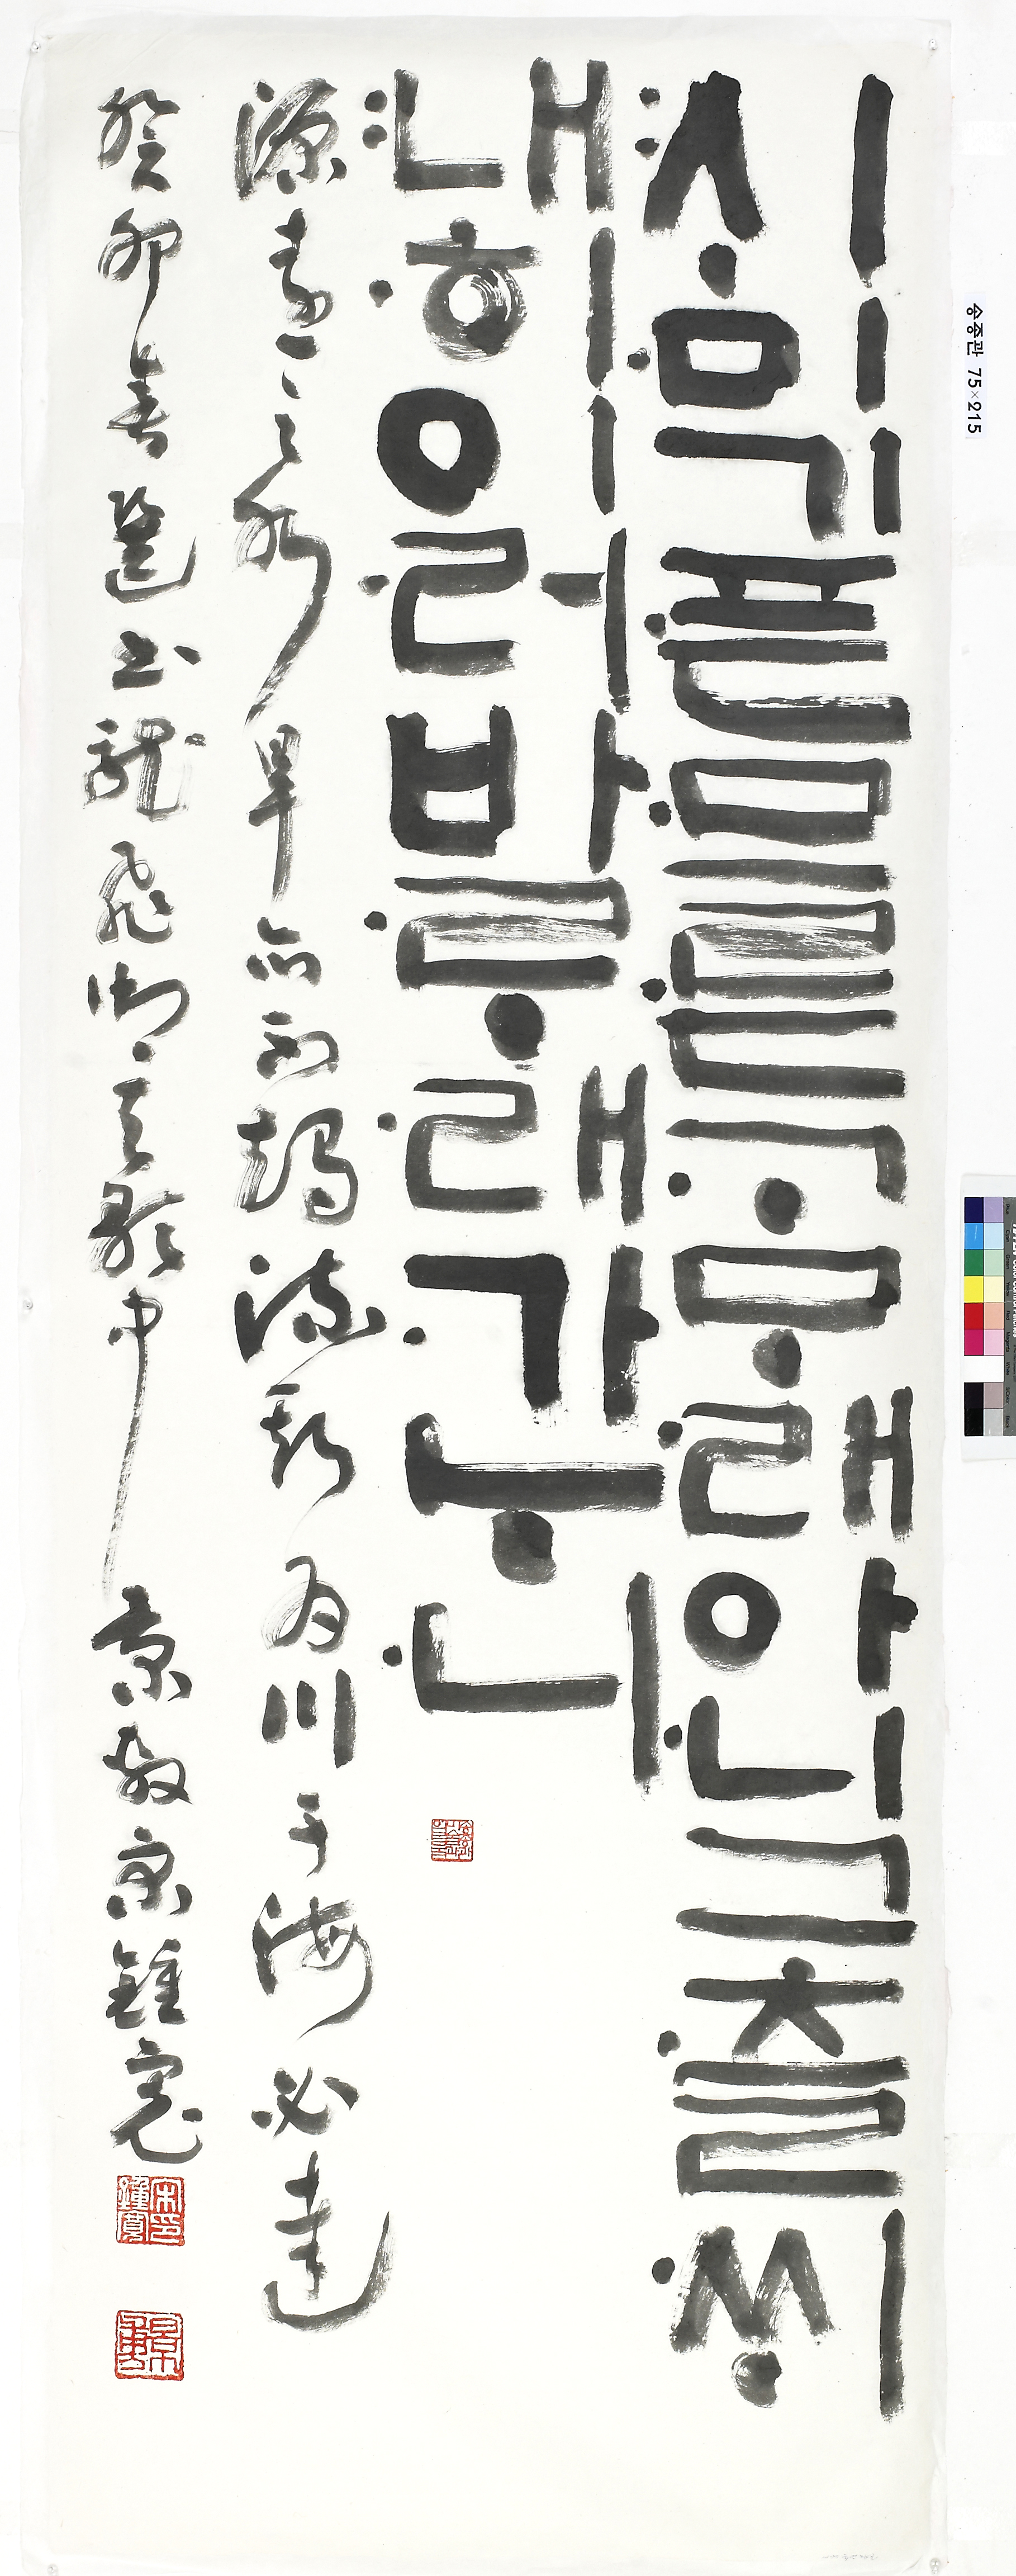 :ᄉᆡ·미기·픈·므·른·ᄀᆞᄆᆞ·래아·니그·츨·ᄊᆡ
:내·히이·러바·ᄅᆞ·래·가ᄂᆞ·니
源遠之水旱亦不竭流斯爲川于海必達
癸卯春龍飛御天歌中宋鍾寬
송종관 75×215